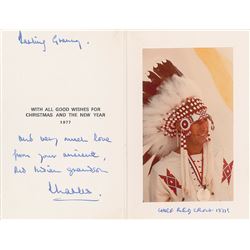 Darling Granny.
WITH ALL GOOD WISHES FOR
CHRISTMAS AND THE NEW YEAR
1977
And very much love
from your ancient,
Red Indian grandson
Charles.
CHIEF RED CROW